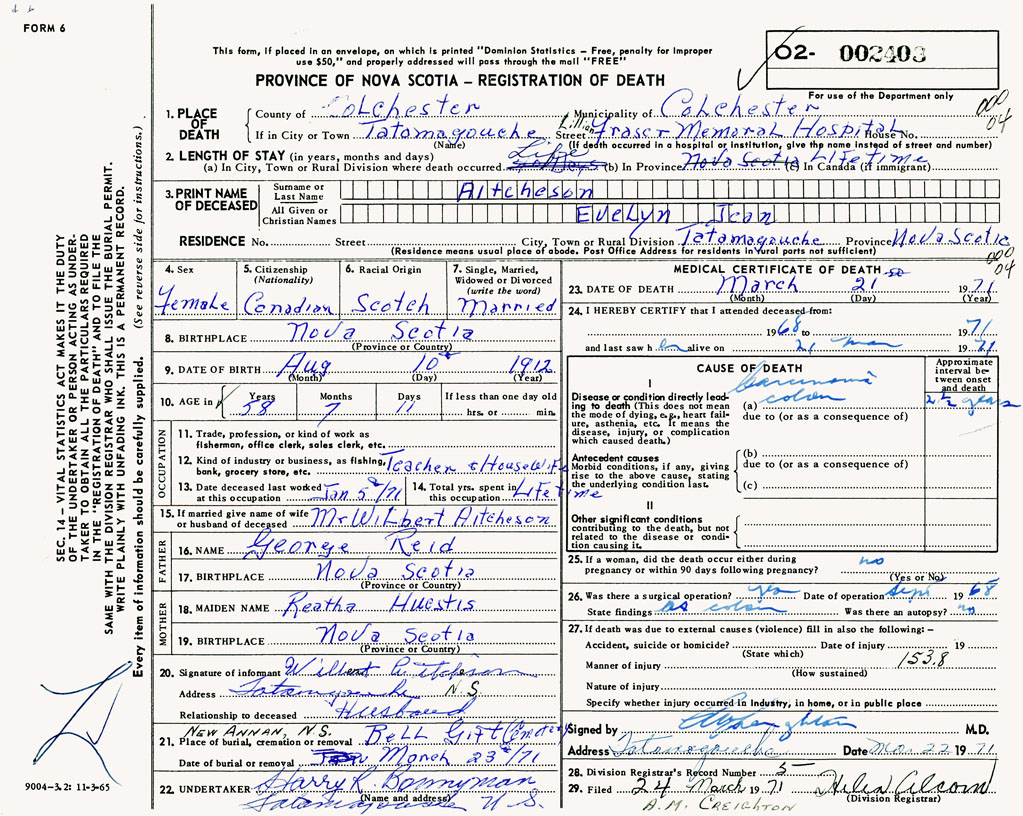 FORM 6
This form, if placed in an envelope, on which is printed "Dominion Statistics – Free, penalty for improper
use $50," and properly addressed will pass through the mail "FREE"
PROVINCE OF NOVA SCOTIA – REGISTRATION OF DEATH
02- 002403
For use of the Department only
000
04
1. PLACE OF DEATH
County of Colchester Municipality of Colchester
If in City or Town Tatamagouche Street Lillian Fraser Memoral Hospital House No.
(Name) (If death occurred in a hospital or institution, give the name instead of street and number)
2. LENGTH OF STAY (in years, months and days)
(a) In City, Town or Rural Division where death occurred Life (b) In Province Nova Scotia (c) In Canada (if immigrant) Lifetime
3. PRINT NAME OF DECEASED
Surname or Last Name Aitcheson
All Given or Christian Names Evelyn Jean
RESIDENCE No. Street City, Town or Rural Division Tatamagouche Province Nova Scotia
(Residence means usual place of abode. Post Office Address for residents in rural ports not sufficient)
000
04
4. Sex
Female
5. Citizenship
(Nationality)
Canadian
6. Racial Origin
Scotch
7. Single, Married,
Widowed or Divorced
(write the word)
Married
8. BIRTHPLACE Nova Scotia
(Province or Country)
9. DATE OF BIRTH Aug 10 1912
(Month) (Day) (Year)
10. AGE in
Years Months Days If less than one day old
58 7 11 hrs. or min.
OCCUPATION
11. Trade, profession, or kind of work as
fisherman, office clerk, sales clerk, etc.
12. Kind of industry or business, as fishing,
bank, grocery store, etc. Teacher & Housewife
13. Date deceased last worked
at this occupation Jan 5th/71
14. Total yrs. spent in
this occupation Lifetime
15. If married give name of wife
or husband of deceased Mr Wilbert Aitcheson
FATHER
16. NAME George Reid
17. BIRTHPLACE Nova Scotia
(Province or Country)
MOTHER
18. MAIDEN NAME Reatha Huestis
19. BIRTHPLACE Nova Scotia
(Province or Country)
20. Signature of informant Wilbert Aitcheson
Address Tatamagouche N.S.
Relationship to deceased Husband
New Annan, N.S.
21. Place of burial, cremation or removal Bell Gift (Cemetery)
Date of burial or removal March 23rd/71
22. UNDERTAKER Harry R. Bonnyman
(Name and address)
Tatamagouche N.S.
MEDICAL CERTIFICATE OF DEATH
23. DATE OF DEATH March 21 1971
(Month) (Day) (Year)
24. I HEREBY CERTIFY that I attended deceased from:
1968 to 1971
and last saw h er alive on 21 Mar 1971
CAUSE OF DEATH
Approximate
interval be-
tween onset
and death
I
Disease or condition directly lead-
ing to death (This does not mean
the mode of dying, e.g., heart fail-
ure, asthenia, etc. It means the
disease, injury, or complication
which caused death.)
Carcinoma
(a) colon
2 1/2 years
due to (or as a consequence of)
Antecedent causes
Morbid conditions, if any, giving
rise to the above cause, stating
the underlying condition last.
(b)
due to (or as a consequence of)
(c)
II
Other significant conditions
contributing to the death, but not
related to the disease or condi-
tion causing it.
25. If a woman, did the death occur either during
pregnancy or within 90 days following pregnancy? no
(Yes or No)
26. Was there a surgical operation? yes Date of operation Sept 1968
State findings ca colon Was there an autopsy? no
27. If death was due to external causes (violence) fill in also the following: –
Accident, suicide or homicide? Date of injury 19
(State which)
Manner of injury 153.8
(How sustained)
Nature of injury
Specify whether injury occurred in Industry, in home, or in public place
Signed by M.D.
Address Tatamagouche Date Mar. 22 1971
28. Division Registrar's Record Number 5
29. Filed 24 March 1971 Helen Alcorn
(Division Registrar)
A.M. Creighton
SEC. 14 – VITAL STATISTICS ACT MAKES IT THE DUTY
OF THE UNDERTAKER OR PERSON ACTING AS UNDER-
TAKER TO OBTAIN ALL THE PARTICULARS REQUIRED
IN THE "REGISTRATION OF DEATH" AND TO FILE THE
SAME WITH THE DIVISION REGISTRAR WHO SHALL ISSUE THE BURIAL PERMIT.
WRITE PLAINLY WITH UNFADING INK. THIS IS A PERMANENT RECORD.
Every item of information should be carefully supplied. (See reverse side for instructions.)
9004-3.2: 11-3-65